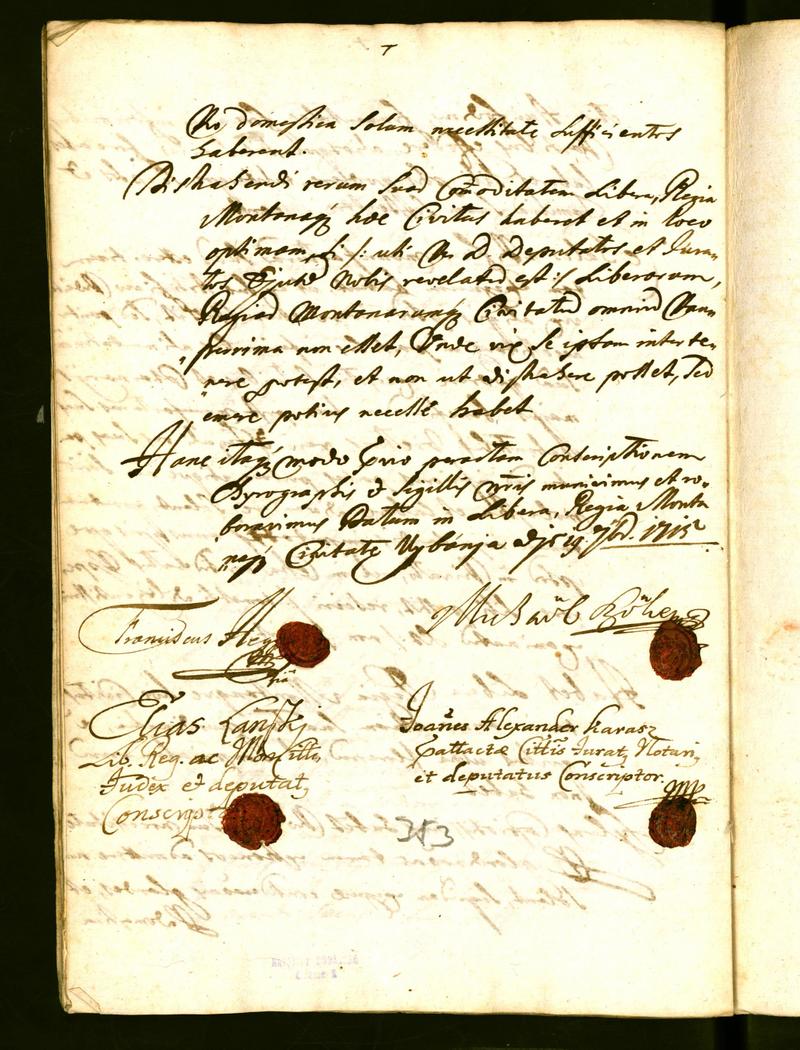 domestica solam necessitate sufficientes
haberent.
Distrahendi rerum suar Commoditatem Libera, Regia
Montanaq hoc Civitas haberet et in loco
optimam, si /: uti D Deputatos et Jura-
tos Nobis revelatum est :/ Liberarum,
Regiar Montanarumq Civitatum omnium
non esset, Unde vix se ipsam interte-
nere potest, et non ut distrahere posset, sed
emere potius necesse habet
Hanc itaq modo pvio peractam Conscriptionem
Chyrographis et Sigillis nris munivimus et ro-
boravimus Datum in Libera, Regia Monta
naq Civitate Uybanja die 19 7br 1715
Franciscus
Michaël
Elias Lanskj
Lib. Reg. ac
Judex et deputat,
Conscript
Joanes Alexander Karasz
Pattactæ Cittis Jurat, Notari,
et deputatus Conscriptor.
mp
353